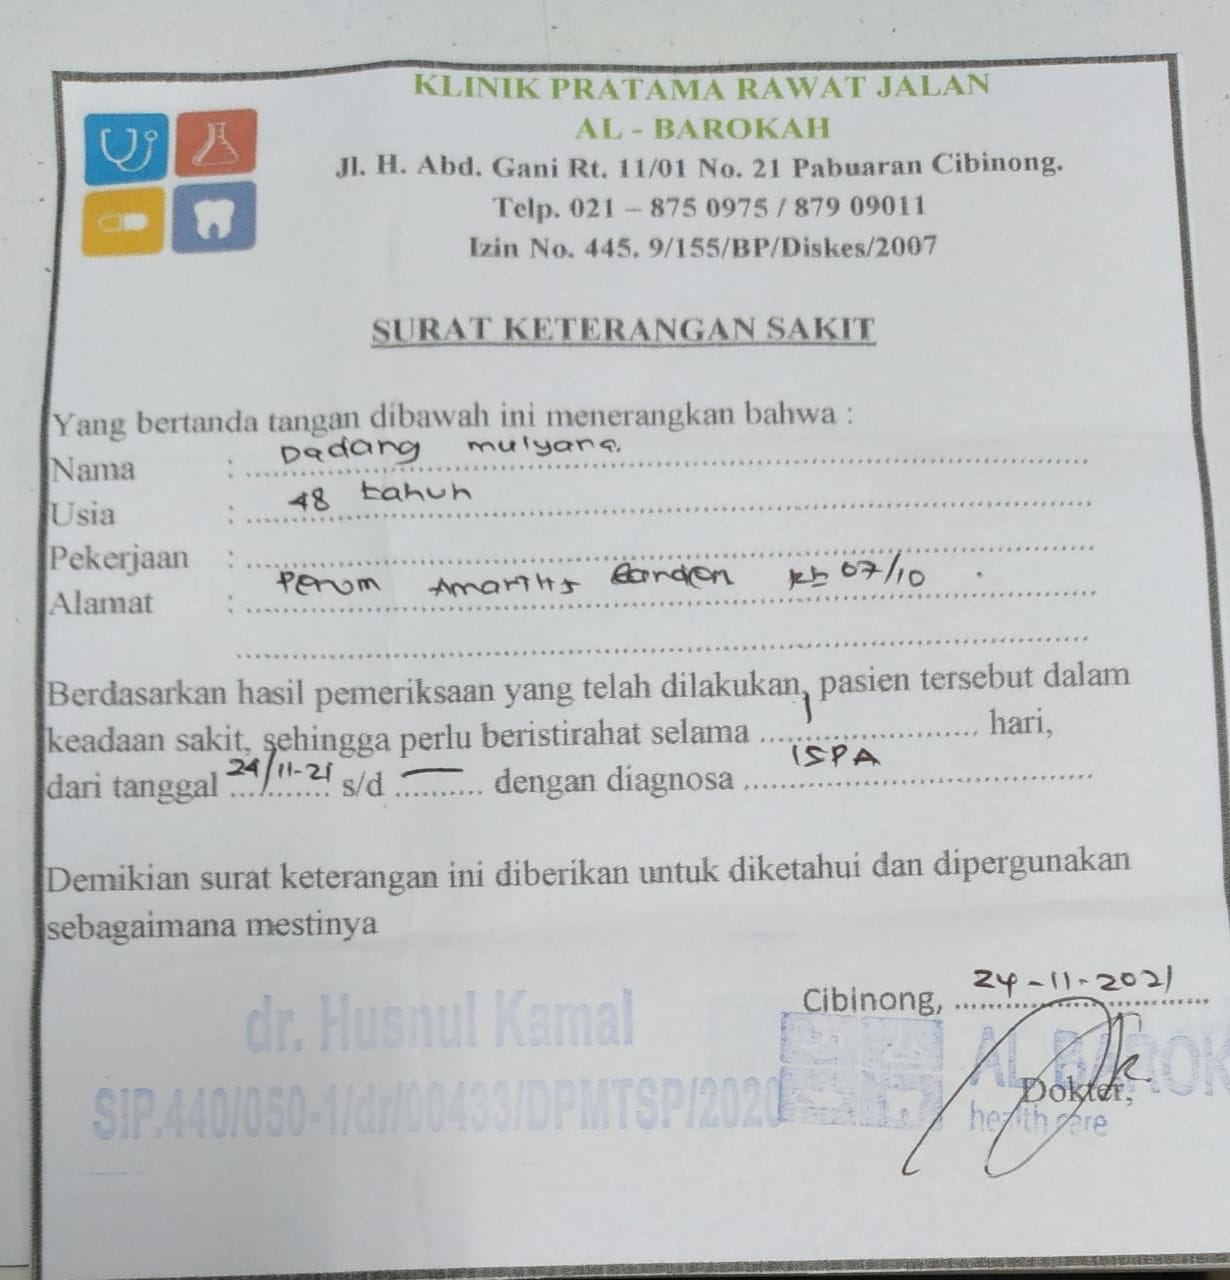 KLINIK PRATAMA RAWAT JALAN
AL - BAROKAH
Jl. H. Abd. Gani Rt. 11/01 No. 21 Pabuaran Cibinong.
Telp. 021 – 875 0975 / 879 09011
Izin No. 445. 9/155/BP/Diskes/2007
SURAT KETERANGAN SAKIT
Yang bertanda tangan dibawah ini menerangkan bahwa :
Nama : Dadang mulyana.
Usia : 48 tahun
Pekerjaan :
Alamat : Perum 07/10
Berdasarkan hasil pemeriksaan yang telah dilakukan, pasien tersebut dalam
keadaan sakit, sehingga perlu beristirahat selama 1 hari,
dari tanggal 24/11-21 s/d — dengan diagnosa ISPA
Demikian surat keterangan ini diberikan untuk diketahui dan dipergunakan
sebagaimana mestinya
Cibinong, 24-11-2021
dr. Husnul Kamal
AL BAROK
Dokter,
health care